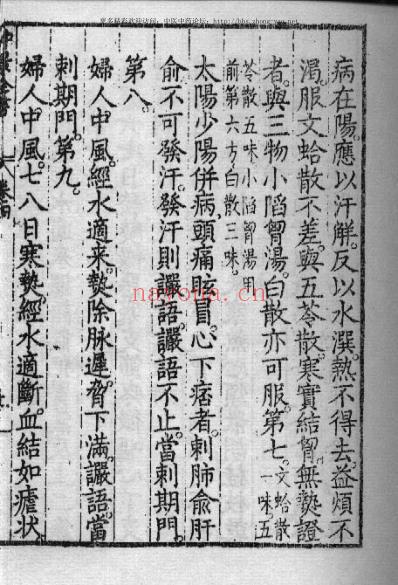 更多精彩欢迎访问:中医中药论坛:http://bbs.zhong-yao.net
病在陽。應以汗解。反以水潠。熱不得去。益煩不
渴。服文蛤散不差。與五苓散。寒實結胷。無熱證
者。與三物小陷胷湯。白散亦可服。第七。
文蛤散
一味。五
苓散五味。小陷胷湯用
前第六方。白散三味。
太陽少陽併病。頭痛眩冒。心下痞者。刺肺俞肝
俞。不可發汗。發汗則讝語。讝語不止。當刺期門。
第八。
婦人中風。經水適来。熱除脉遲。脅下滿。讝語。當
刺期門。第九。
婦人中風。七八日寒熱。經水適斷。血結如瘧状
nayona.cn